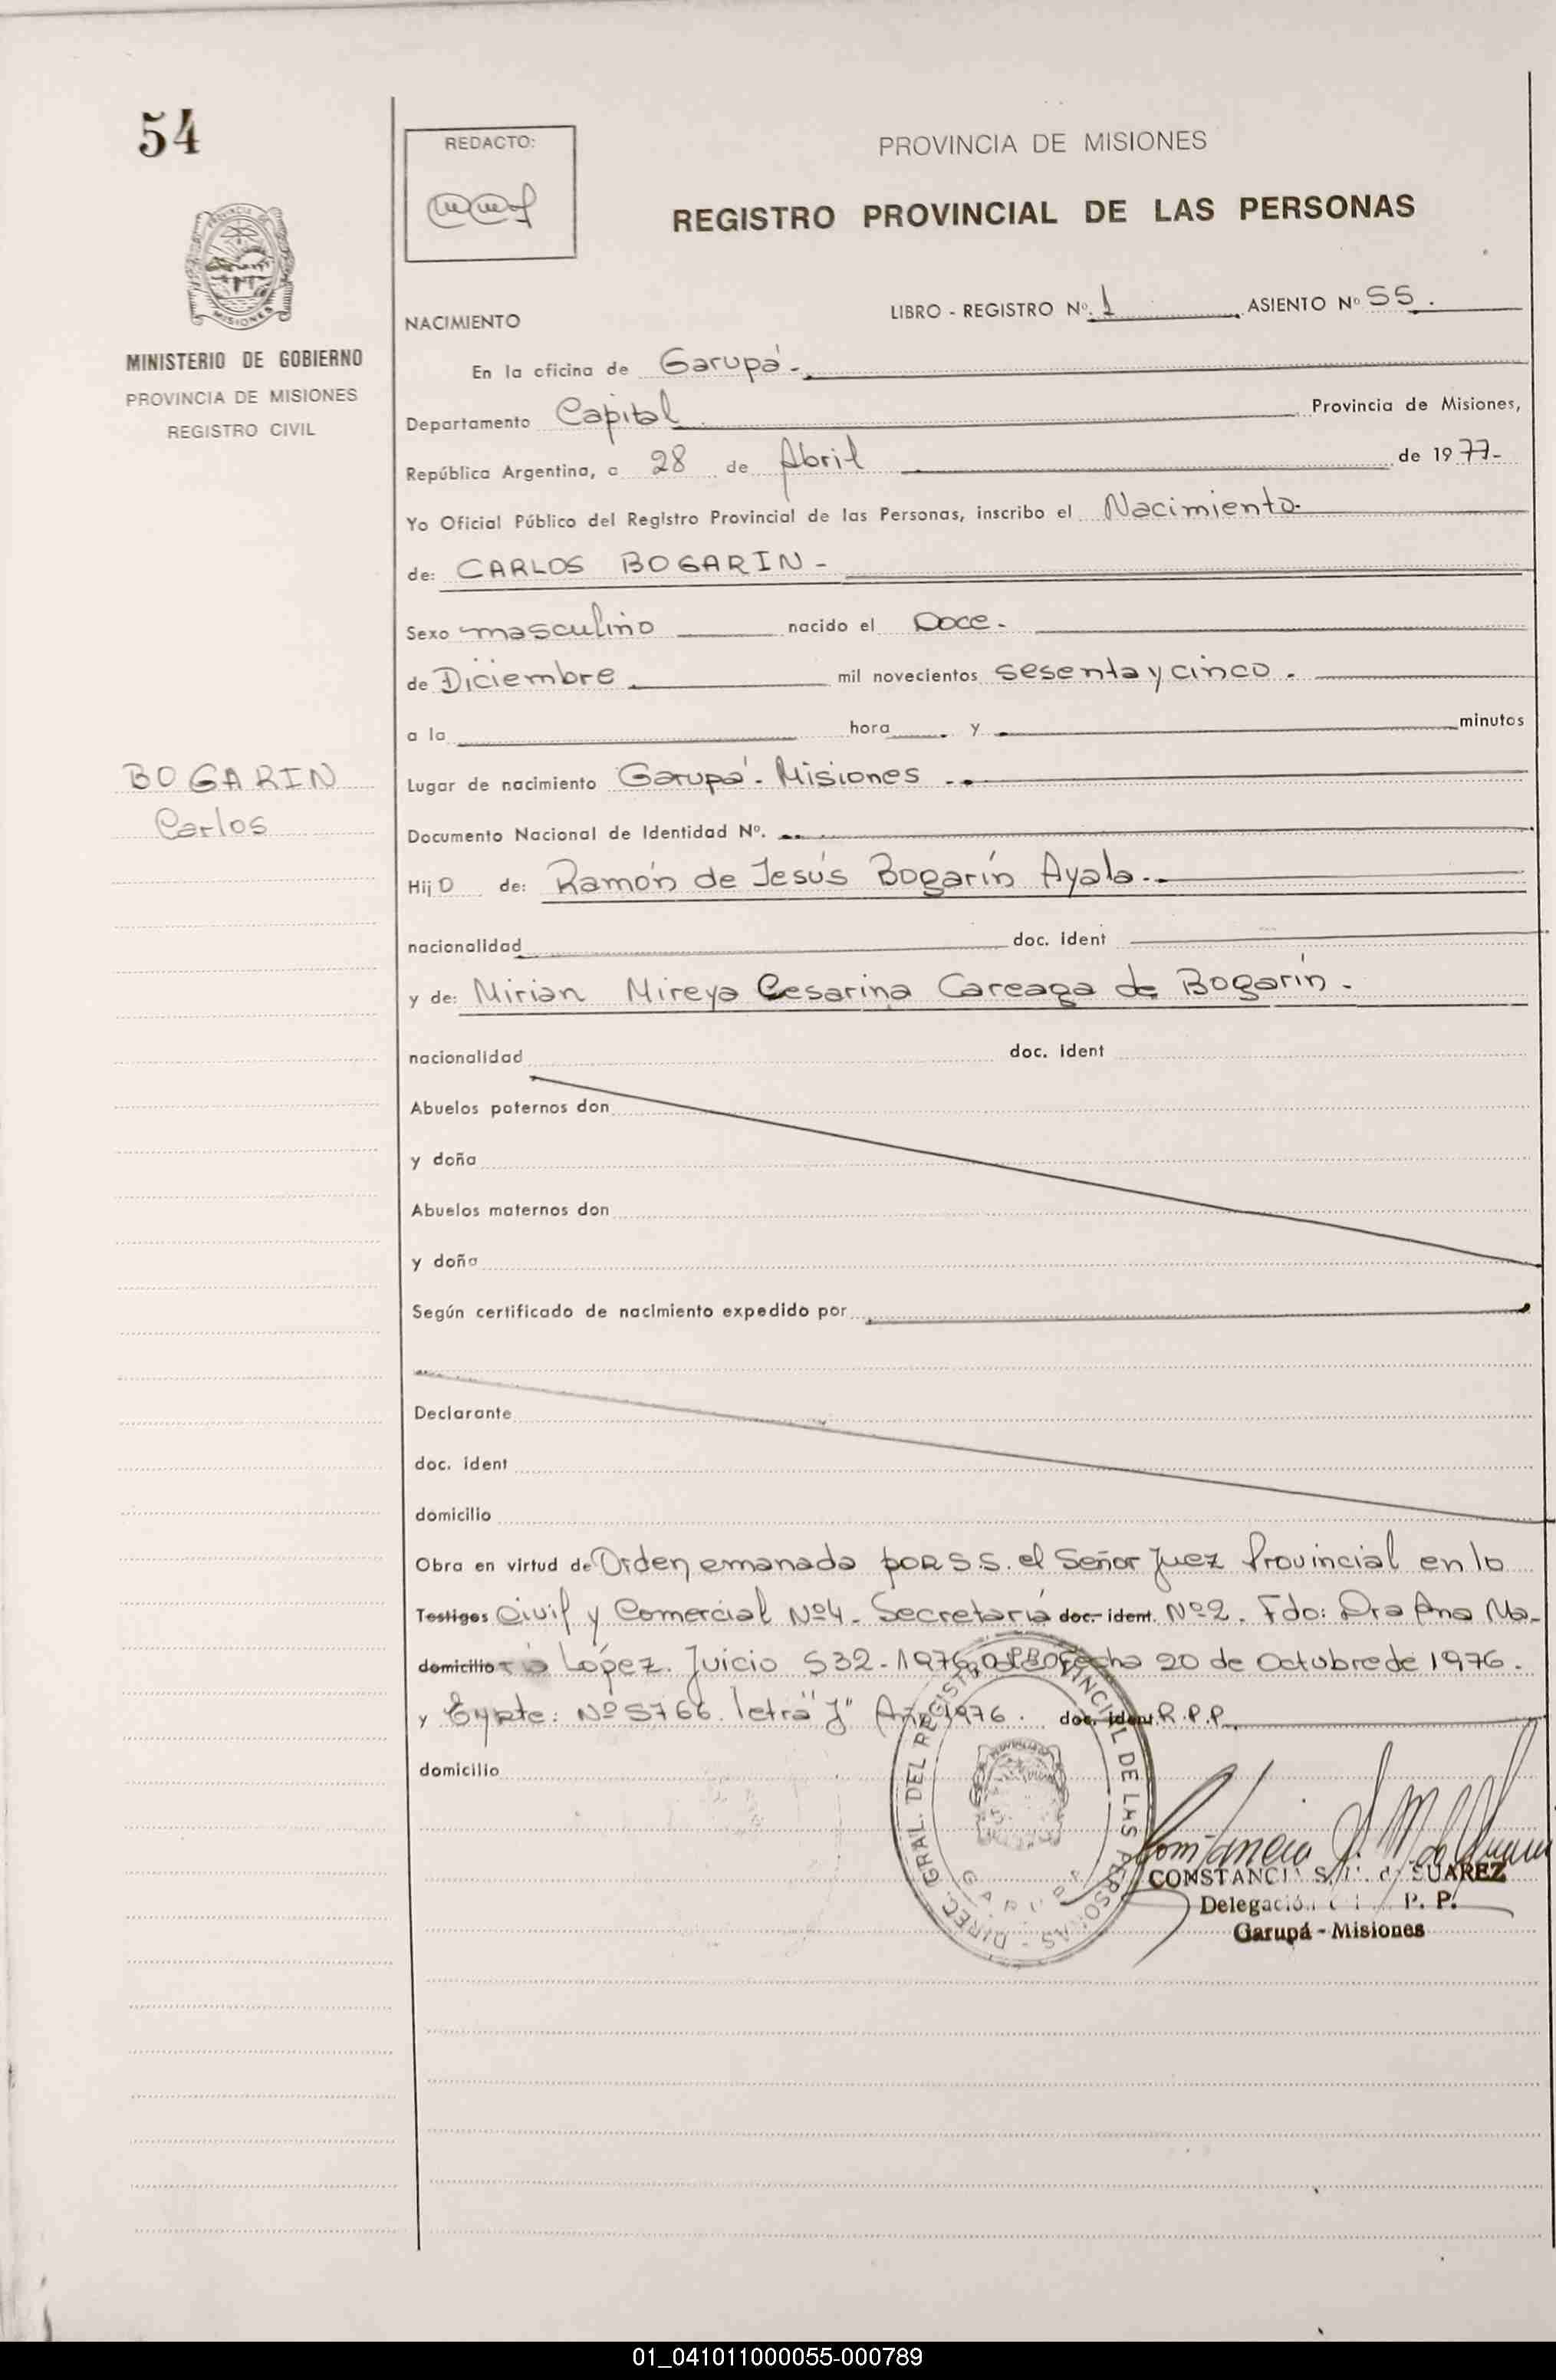 54
REDACTO:
PROVINCIA DE MISIONES
REGISTRO PROVINCIAL DE LAS PERSONAS
PROVINCIA DE
MISIONES
MINISTERIO DE GOBIERNO
PROVINCIA DE MISIONES
REGISTRO CIVIL
NACIMIENTO
LIBRO - REGISTRO Nº. 1 ASIENTO Nº 55.
En la oficina de Garupá-
Departamento Capital Provincia de Misiones,
República Argentina, a 28 de Abril de 1977-
Yo Oficial Público del Registro Provincial de las Personas, inscribo el Nacimiento
de: CARLOS BOGARIN-
Sexo masculino nacido el Doce.
de Diciembre mil novecientos sesenta y cinco.
a la hora y minutos
BOGARIN
Carlos
Lugar de nacimiento Garupá- Misiones -.
Documento Nacional de Identidad Nº.
Hijo de: Ramón de Jesús Bogarín Ayala.-
nacionalidad doc. ident
y de: Mirian Mireya Cesarina Careaga de Bogarín.
nacionalidad doc. ident
Abuelos paternos don
y doña
Abuelos maternos don
y doña
Según certificado de nacimiento expedido por
Declarante
doc. ident
domicilio
Obra en virtud de Orden emanada por S.S. el Señor Juez Provincial en lo
Testigos Civil y Comercial Nº4- Secretaría doc. ident. Nº2. Fdo: Dra Ana Ma-
domicilio ría López. Juicio 532-1976, fecha 20 de Octubre de 1976.
y Expte: Nº 5766. letra "J" Año 1976. doc. ident. R.P.P.
domicilio
DIREC. GRAL. DEL REGISTRO PROVINCIAL DE LAS PERSONAS -
GARUPA
CONSTANCIA S. de SUAREZ
Delegación P. P.
Garupá - Misiones
01_041011000055-000789